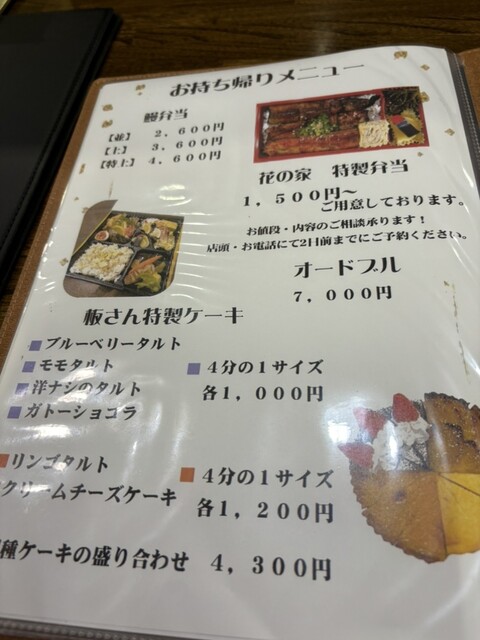 お持ち帰りメニュー
鰻弁当
【並】 2,600円
【上】 3,600円
【特上】 4,600円
花の家 特製弁当
1,500円～
ご用意しております。
お値段・内容のご相談承ります！
店頭・お電話にて2日前までにご予約ください。
オードブル
7,000円
板さん特製ケーキ
ブルーベリータルト
モモタルト
洋ナシのタルト
ガトーショコラ
4分の1サイズ
各1,000円
リンゴタルト
クリームチーズケーキ
4分の1サイズ
各1,200円
種ケーキの盛り合わせ 4,300円